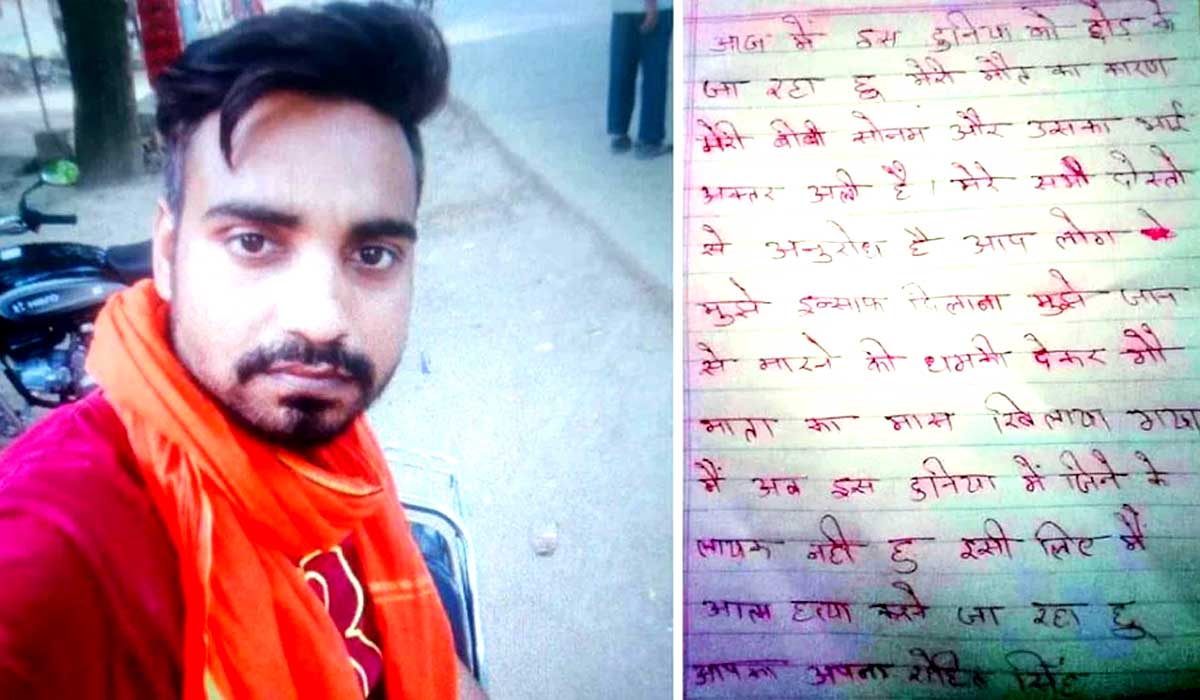 आज मैं इस दुनिया को छोड़ के
जा रहा हू मेरी मौत का कारण
मेरी बीबी सोनम और उसका भाई
अक्तर अली है। मेरे सभी दोस्तो
से अनुरोध है आप लोग
मुझे इन्साफ दिलाना मुझे जान
से मारने की धमकी देकर गौ
माता का मास खिलाया गया
मैं अब इस दुनिया में जिने के
लायक नही हु इसी लिए मैं
आत्म हत्या करने जा रहा हू
आपका अपना रोहित सिंह
HERO